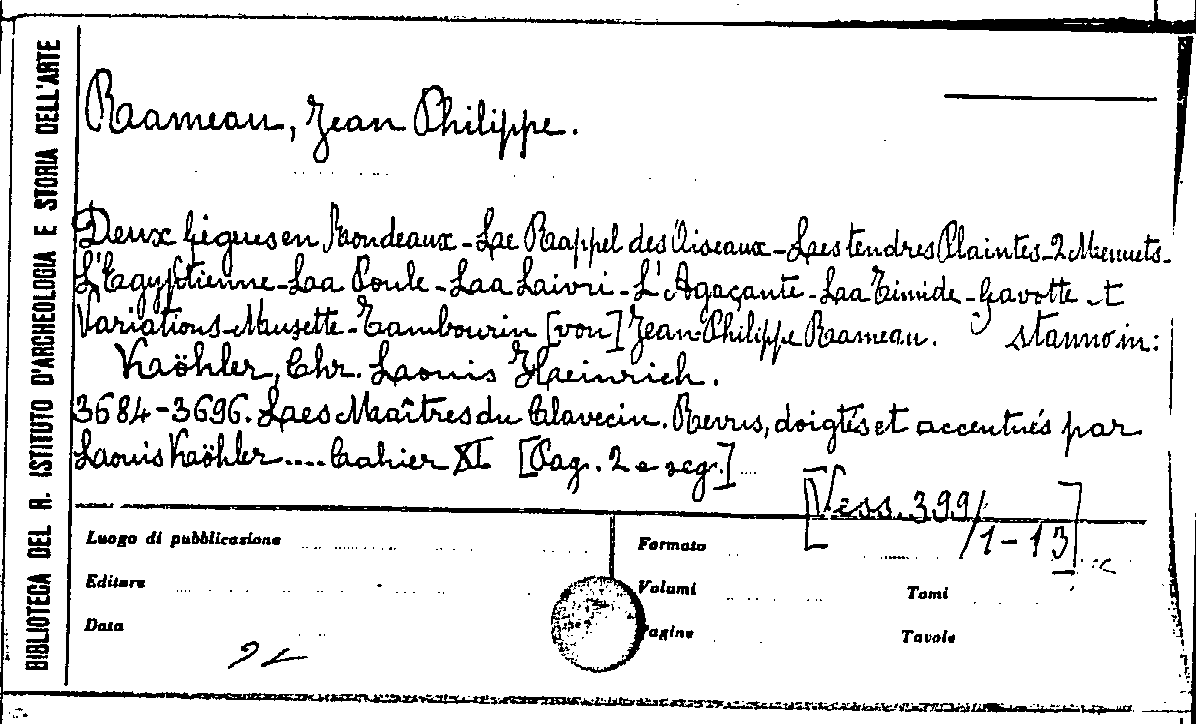 BIBLIOTECA DEL R. ISTITUTO D'ARCHEOLOGIA E STORIA DELL'ARTE
Rameau, Jean Philippe.
Deux Gigues en Rondeaux - Le Rappel des Oiseaux - Les tendres Plaintes - 2 Menuets -
L'Egyptienne - La Poule - La Laivri - L'Agaçante - La Timide - Gavotte et
Variations - Musette - Tambourin [von] Jean-Philippe Rameau. stanno in:
Köhler, Chr. Louis Heinrich.
3684-3696. Les Maîtres du Clavecin. Revus, doigtés et accentués par
Louis Köhler.... Cahier XI [Pag. 2 e seg.]
[Vess. 399/
/1-13]
Luogo di pubblicazione
Formato
Editore
Volumi
Tomi
Data
Pagine
Tavole